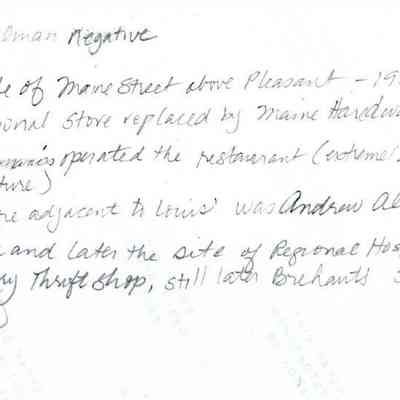 oman Negative
e of Maine Street above Pleasant - 19
ional store replaced by Maine Hardw
operated the restaurant (extreme
ture)
re adjacent to Louis' was Andrew Al
and later the site of Regional Hos
y Thrift Shop, still later Brehants